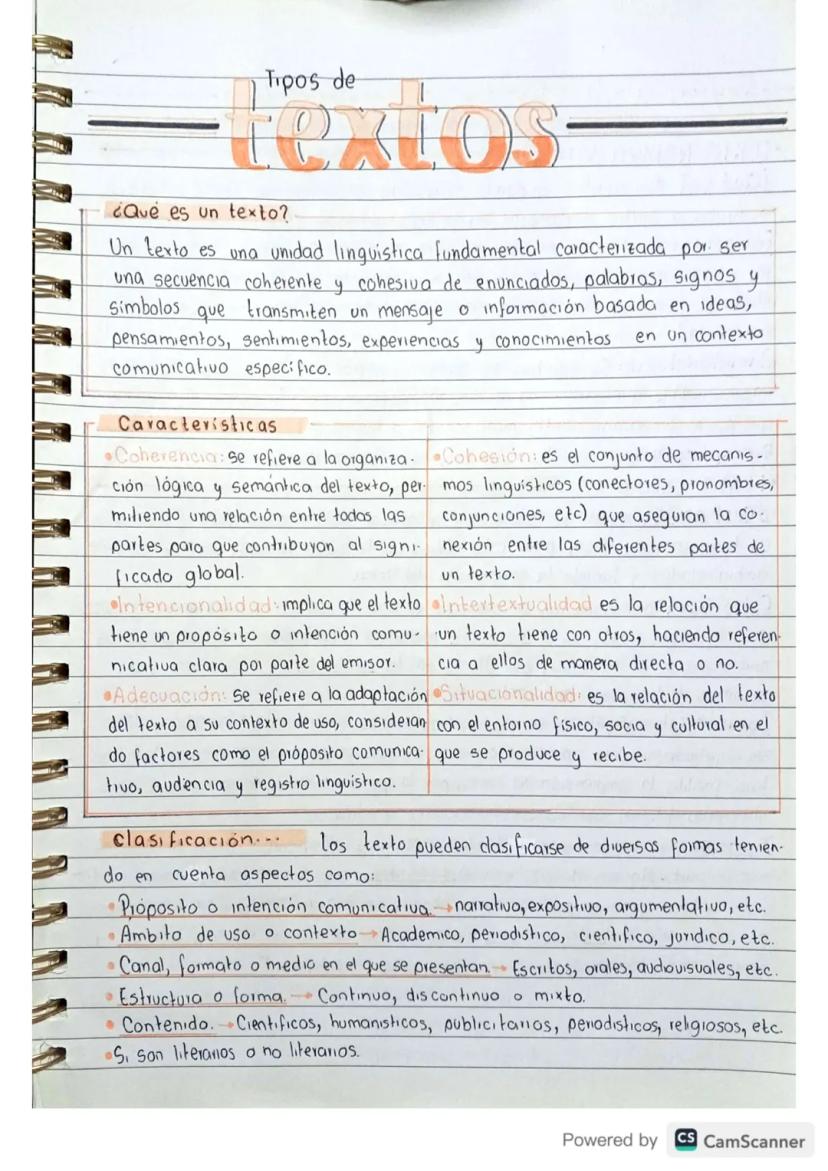 Tipos de
textos
¿Qué es un texto?
Un texto es una unidad linguistica fundamental caracterizada por ser
una secuencia coherente y cohesiva de enunciados, palabras, signos y
simbolos que transmiten un mensaje o información basada en ideas,
pensamientos, sentimientos, experiencias y conocimientos en un contexto
comunicativo especifico.
Caracteristicas
•Coherencia: se refiere a la organiza-
ción lógica y semántica del texto, per-
mitiendo una relación entre todas las
partes para que contribuyan al signi-
ficado global.
•Intencionalidad: implica que el texto
tiene un propósito o intención comu-
nicativa clara por parte del emisor.
•Adecuación: se refiere a la adaptación
del texto a su contexto de uso, consideran
do factores como el próposito comunica-
tivo, audencia y registro linguistico.
•Cohesión: es el conjunto de mecanis-
mos linguisticos (conectores, pronombres,
conjunciones, etc) que aseguran la co-
nexión entre las diferentes partes de
un texto.
•Intertextualidad es la relación que
un texto tiene con otros, haciendo referen-
cia a ellos de manera directa o no.
•Situacionalidad: es la relación del texto
con el entorno fisico, socia y cultural en el
que se produce y recibe.
Clasificación... los texto pueden clasificarse de diversas formas tenien-
do en cuenta aspectos como:
• Próposito o intención comunicativa.→narrativo, expositivo, argumentativo, etc.
• Ambito de uso o contexto→Academico, periodistico, cientifico, juridico, etc.
• Canal, formato o medio en el que se presentan.→ Escritos, orales, audiovisuales, etc.
• Estructura o forma.→ Continuo, discontinuo o mixto.
• Contenido.→Cientificos, humanisticos, publicitarios, periodisticos, religiosos, etc.
•Si son literarios o no literarios.
Powered by CS CamScanner